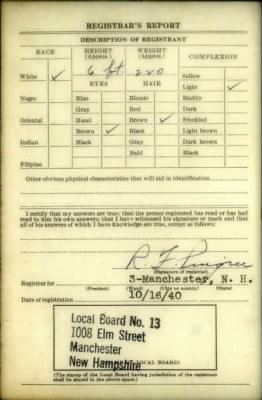 REGISTRAR'S REPORT
DESCRIPTION OF REGISTRANT
RACE HEIGHT (Approx.) WEIGHT (Approx.) COMPLEXION
White ✓ 6 ft. 220 Sallow
EYES HAIR Light ✓
Negro Blue Blonde Ruddy
Gray Red Dark
Oriental Hazel Brown ✓ Freckled
Brown ✓ Black Light brown
Indian Black Gray Dark brown
Bald Black
Filipino
Other obvious physical characteristics that will aid in identification
I certify that my answers are true; that the person registered has read or has had
read to him his own answers; that I have witnessed his signature or mark and that
all of his answers of which I have knowledge are true, except as follows:
R F
(Signature of registrar)
Registrar for 3-Manchester, N. H.
(Precinct) (Ward) (City or County) (State)
Date of registration 10/16/40
Local Board No. 13
1008 Elm Street
Manchester
New Hampshire
LOCAL BOARD)
(The stamp of the Local Board having jurisdiction of the registrant
shall be placed in the above space.)